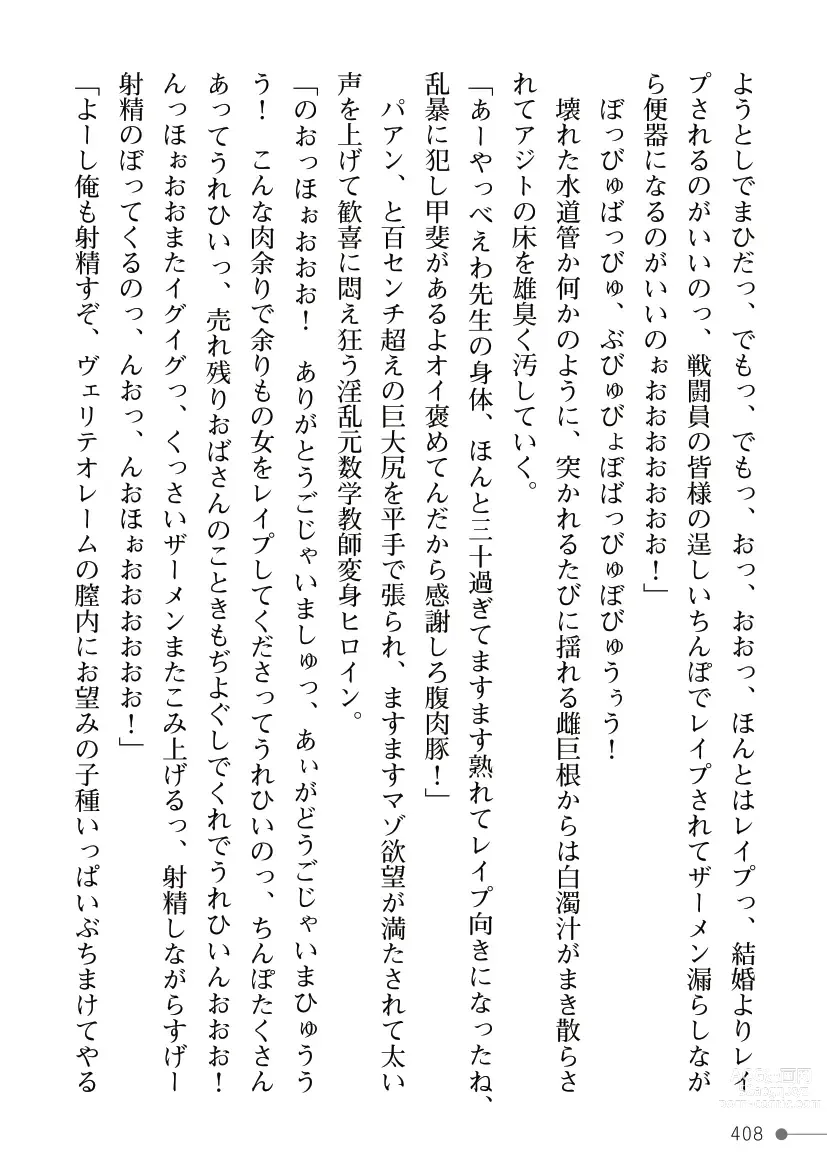 ようとしでまひだっ、でもっ、でもっ、おっ、おおっ、ほんとはレイプっ、結婚よりレイ
プされるのがいいのっ、戦闘員の皆様の逞しいちんぽでレイプされてザーメン漏らしなが
ら便器になるのがいいのぉおおおおおおお！」
ぼっびゅばっびゅ、ぶびゅびょぼばっびゅぼびゅうぅう！
壊れた水道管か何かのように、突かれるたびに揺れる雌巨根からは白濁汁がまき散らさ
れてアジトの床を雄臭く汚していく。
「あーやっべえわ先生の身体、ほんと三十過ぎてますます熟れてレイプ向きになったね、
乱暴に犯し甲斐があるよオイ褒めてんだから感謝しろ腹肉豚！」
パアン、と百センチ超えの巨大尻を平手で張られ、ますますマゾ欲望が満たされて太い
声を上げて歓喜に悶え狂う淫乱元数学教師変身ヒロイン。
「のおっほぉおおお！　ありがとうごじゃいましゅっ、あぃがどうごじゃいまひゅうう
う！　こんな肉余りで余りもの女をレイプしてくださってうれひいのっ、ちんぽたくさん
あってうれひいっ、売れ残りおばさんのこときもぢよぐしでくれでうれひいんおおお！
んっほぉおおまたイグイグっ、くっさいザーメンまたこみ上げるっ、射精しながらすげー
射精のぼってくるのっ、んおっ、んおほぉおおおおおお！」
「よーし俺も射精すぞ、ヴェリテオレームの膣内にお望みの子種いっぱいぶちまけてやる
408